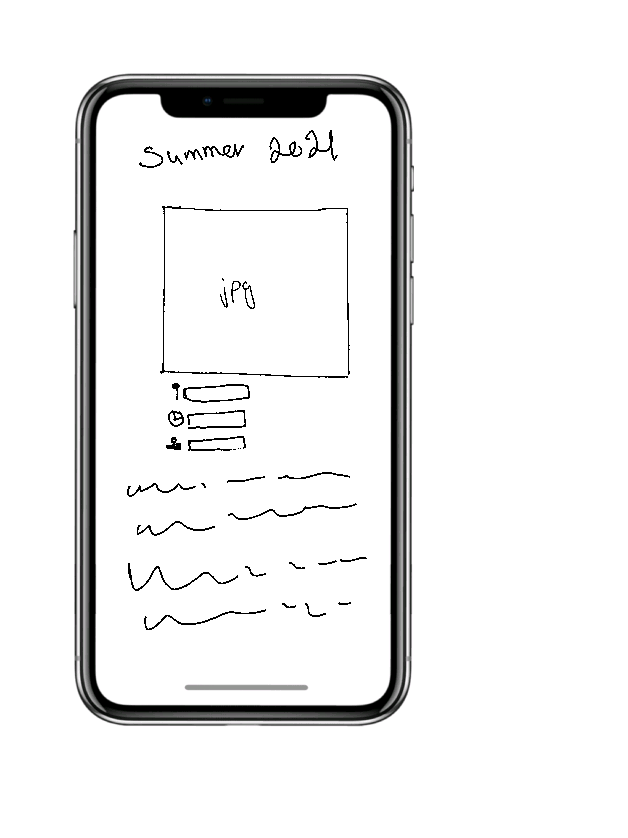 Summer 2021
jpg